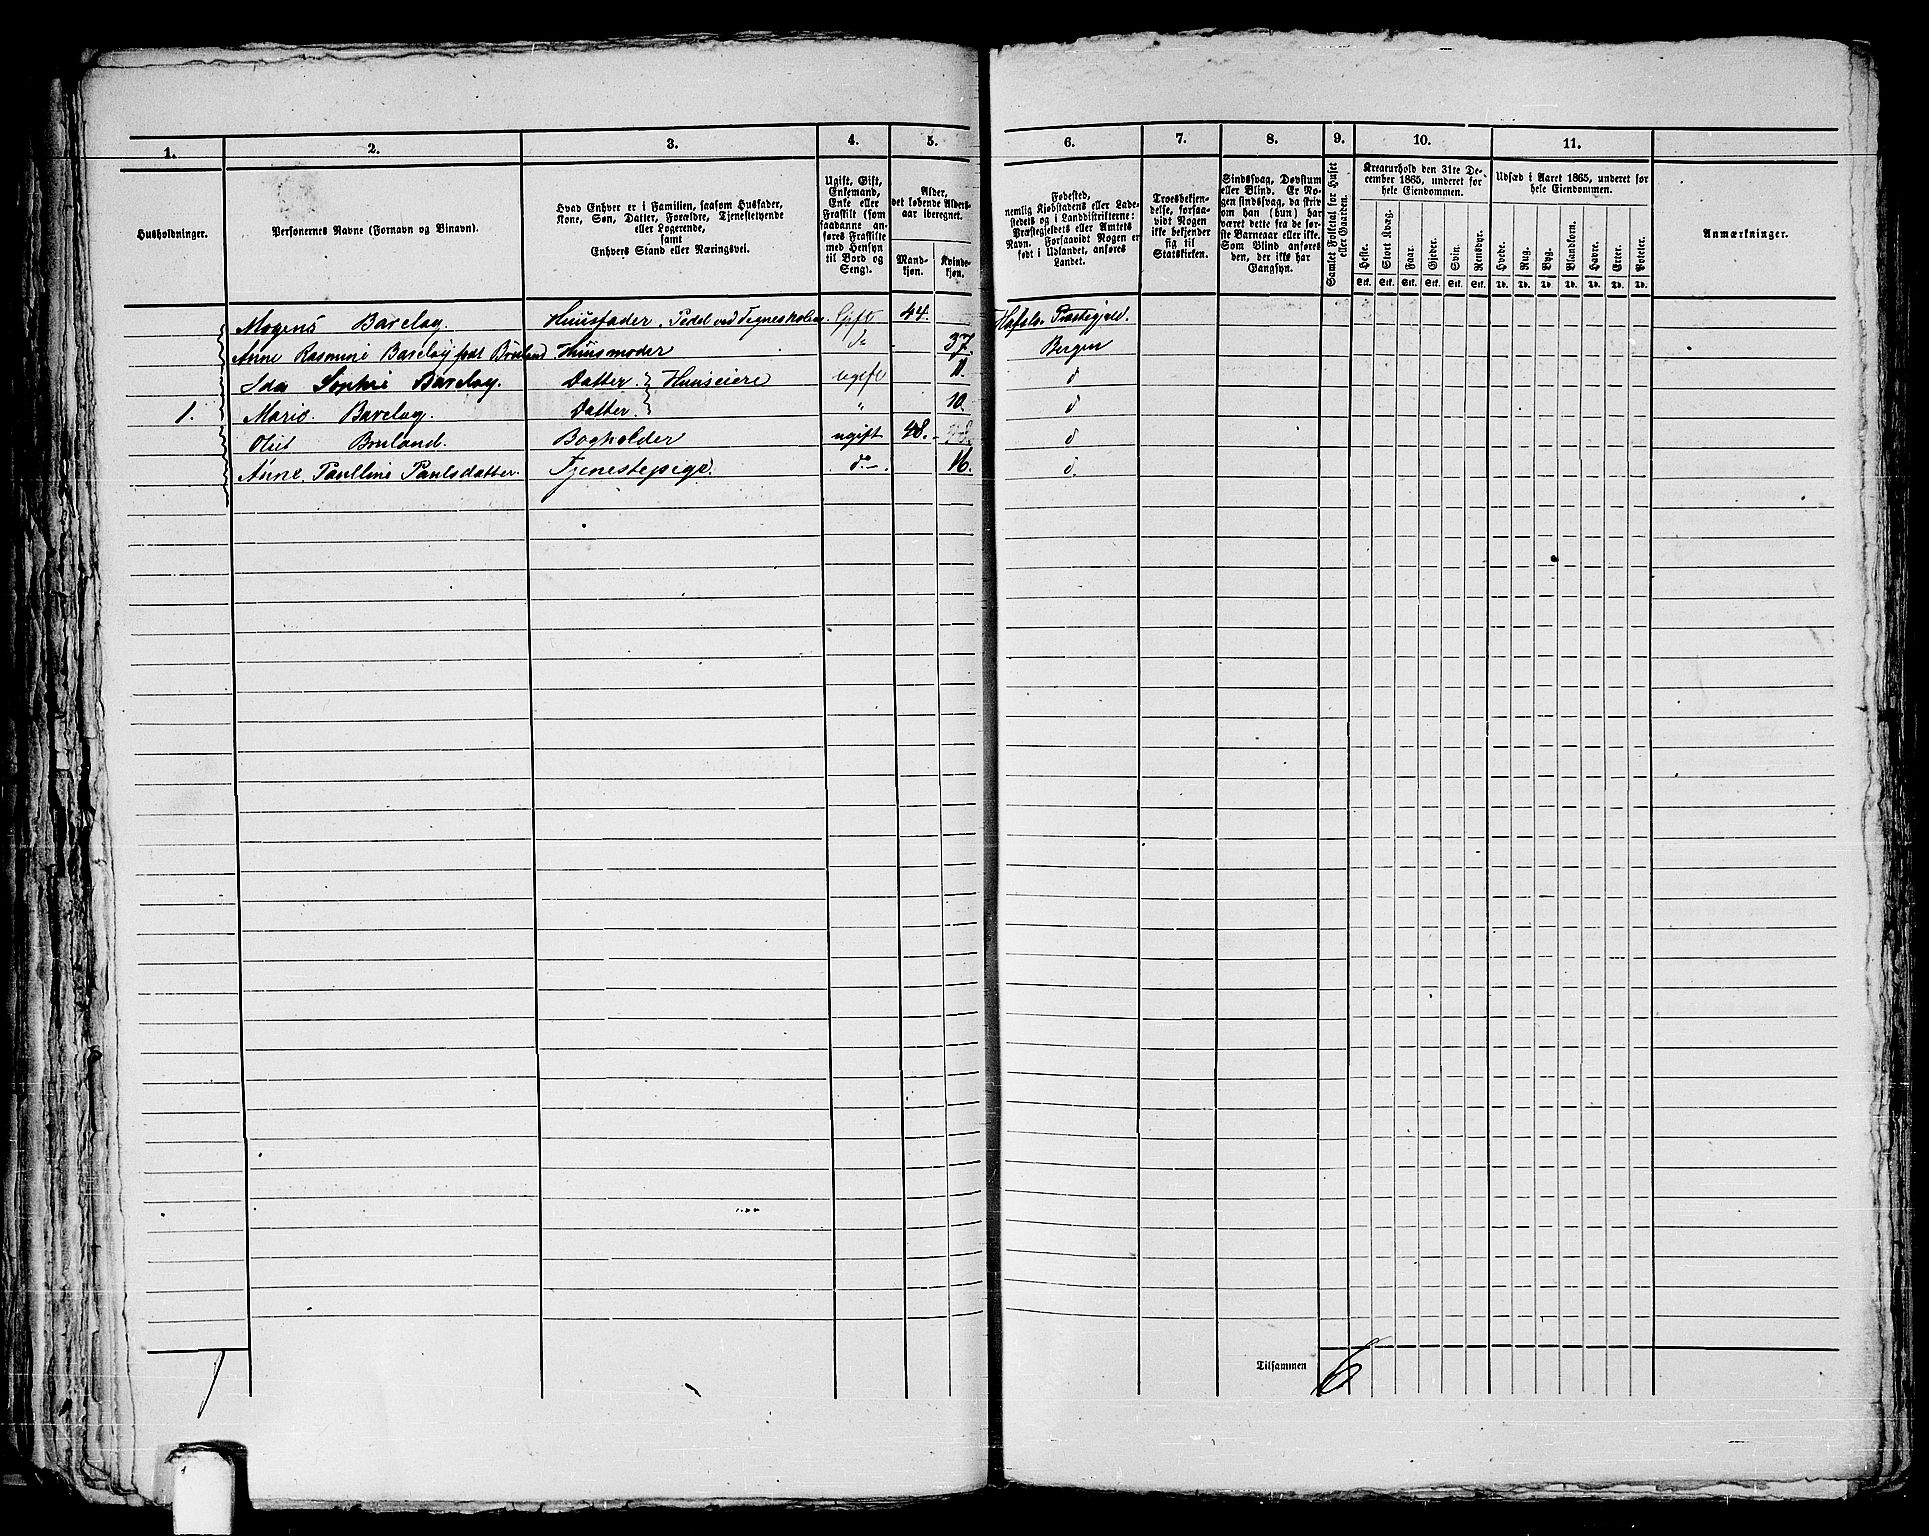 1. 2. 3. 4. 5. 6. 7. 8. 9. 10. 11.
Husholdninger.
Personernes Navne (Fornavn og Binavn).
Hvad Enhver er i Familien, saasom Husfader,
Kone, Søn, Datter, Forældre, Tjenestetyende
eller Logerende,
samt
Enhvers Stand eller Næringsvei.
Ugift, Gift,
Enkemand,
Enke eller
Fraskilt (som
saadanne an-
føres Fraskilte
med Hensyn
til Bord og
Seng).
Alder,
det løbende Alders-
aar iberegnet.
Mand-
kjøn.
Kvinde-
kjøn.
Fødested,
nemlig Kjøbstadens eller Lade-
stedets og i Landdistrikterne:
Præstegjeldets eller Amtets
Navn. Forsaavidt Nogen er
født i Udlandet, anføres
Landet.
Troesbekjen-
delse, forsaa-
vidt Nogen
ikke bekjender
sig til
Statskirken.
Sindssvag, Døvstum
eller Blind. Er No-
gen sindssvag, da skriv
om han (hun) har
været dette fra de før-
ste Barneaar eller ikke.
Som Blind anføres
den, der ikke har
Gangsyn.
Samlet Folketal for Huset
eller Gaarden.
Kreaturhold den 31te De-
cember 1865, underet for
hele Eiendommen.
Heste. Stort Kvæg. Faar. Gjeder. Svin. Rensdyr.
Stk. Stk. Stk. Stk. Stk. Stk.
Udsæd i Aaret 1865, underet for
hele Eiendommen.
Hvede. Rug. Byg. Blandkorn. Havre. Erter. Poteter.
Td. Td. Td. Td. Td. Td. Td.
Anmærkninger.
Mogens Barclay. Huusfader, Pedel ved Tegneskolen Gift 44. Hafslo Præstegjeld.
Anne Rasmine Barclay født Bruland Huusmoder do 37. Bergen
Ida Sophie Barclay. Datter. } Huuseiere ugift 11. d
1. Marie. Barclay. Datter. } " 10. d
Bruland. Bogholder ugift 48. d
Anne Paulline Paulsdatter. Tjenestepige. do 16. d.
1
Tilsammen 6